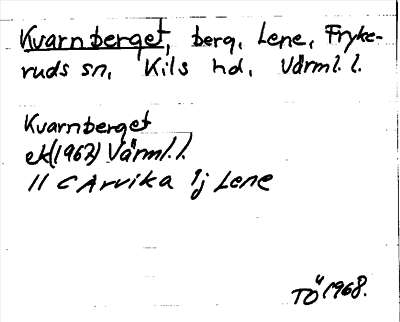 Kvarnberget, berg, Lene, Fryke-
ruds sn, Kils hd, Värml. l.
Kvarnberget
ek(1967) Värml. l.
11 C Arvika 1j Lene
TÖ 1968.